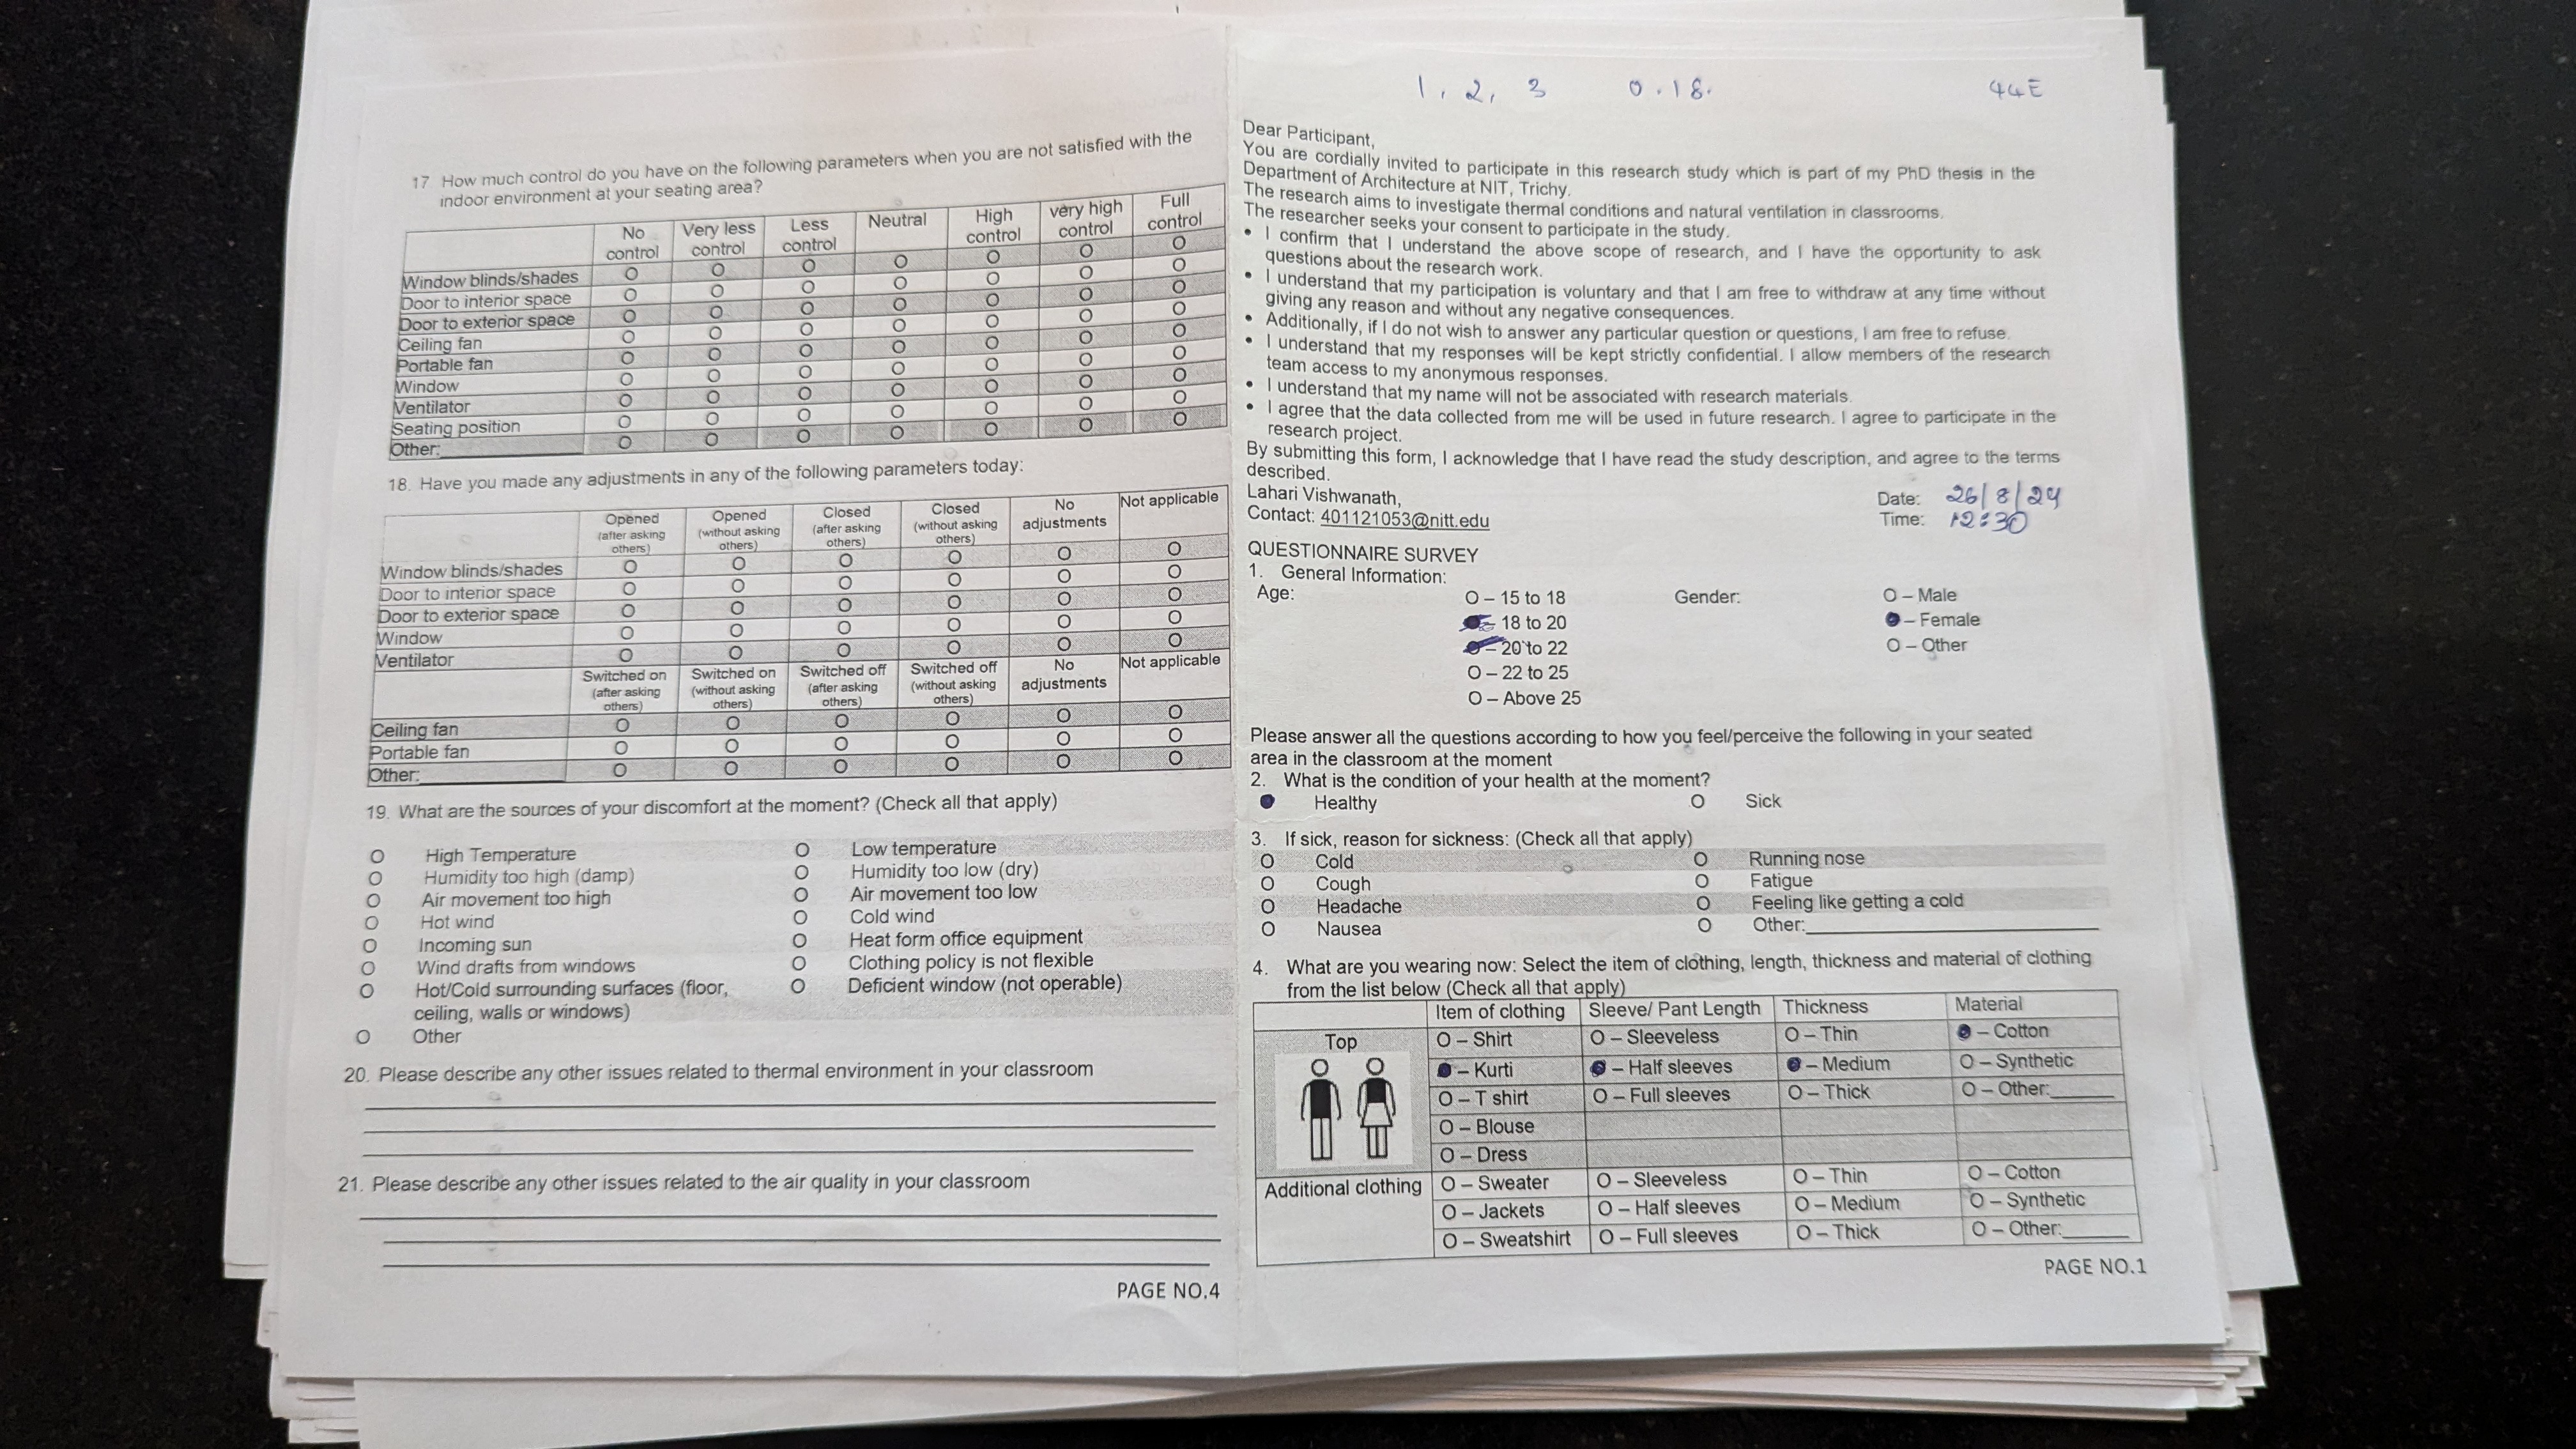 17 How much control do you have on the following parameters when you are not satisfied with the
indoor environment at your seating area?
No control Very less control Less control Neutral High control very high control Full control
Window blinds/shades O O O O O O O
Door to interior space O O O O O O O
Door to exterior space O O O O O O O
Ceiling fan O O O O O O O
Portable fan O O O O O O O
Window O O O O O O O
Ventilator O O O O O O O
Seating position O O O O O O O
Other: O O O O O O O
18. Have you made any adjustments in any of the following parameters today:
Opened (after asking others) Opened (without asking others) Closed (after asking others) Closed (without asking others) No adjustments Not applicable
Window blinds/shades O O O O O O
Door to interior space O O O O O O
Door to exterior space O O O O O O
Window O O O O O O
Ventilator O O O O O O
Switched on (after asking others) Switched on (without asking others) Switched off (after asking others) Switched off (without asking others) No adjustments Not applicable
Ceiling fan O O O O O O
Portable fan O O O O O O
Other: O O O O O O
19. What are the sources of your discomfort at the moment? (Check all that apply)
O High Temperature O Low temperature
O Humidity too high (damp) O Humidity too low (dry)
O Air movement too high O Air movement too low
O Hot wind O Cold wind
O Incoming sun O Heat form office equipment
O Wind drafts from windows O Clothing policy is not flexible
O Hot/Cold surrounding surfaces (floor, O Deficient window (not operable)
ceiling, walls or windows)
O Other
20. Please describe any other issues related to thermal environment in your classroom
21. Please describe any other issues related to the air quality in your classroom
PAGE NO.4
1, 2, 3 0.18. 44E
Dear Participant,
You are cordially invited to participate in this research study which is part of my PhD thesis in the
Department of Architecture at NIT, Trichy.
The research aims to investigate thermal conditions and natural ventilation in classrooms.
The researcher seeks your consent to participate in the study.
• I confirm that I understand the above scope of research, and I have the opportunity to ask
questions about the research work.
• I understand that my participation is voluntary and that I am free to withdraw at any time without
giving any reason and without any negative consequences.
• Additionally, if I do not wish to answer any particular question or questions, I am free to refuse.
• I understand that my responses will be kept strictly confidential. I allow members of the research
team access to my anonymous responses.
• I understand that my name will not be associated with research materials.
• I agree that the data collected from me will be used in future research. I agree to participate in the
research project.
By submitting this form, I acknowledge that I have read the study description, and agree to the terms
described.
Lahari Vishwanath, Date: 26/8/24
Contact: 401121053@nitt.edu Time: 12:30
QUESTIONNAIRE SURVEY
1. General Information:
Age: O – 15 to 18 Gender: O – Male
– 18 to 20 – Female
– 20 to 22 O – Other
O – 22 to 25
O – Above 25
Please answer all the questions according to how you feel/perceive the following in your seated
area in the classroom at the moment
2. What is the condition of your health at the moment?
Healthy O Sick
3. If sick, reason for sickness: (Check all that apply)
O Cold O Running nose
O Cough O Fatigue
O Headache O Feeling like getting a cold
O Nausea O Other:
4. What are you wearing now: Select the item of clothing, length, thickness and material of clothing
from the list below (Check all that apply)
Item of clothing Sleeve/ Pant Length Thickness Material
Top O – Shirt O – Sleeveless O – Thin – Cotton
– Kurti – Half sleeves – Medium O – Synthetic
O – T shirt O – Full sleeves O – Thick O – Other:
O – Blouse
O – Dress
Additional clothing O – Sweater O – Sleeveless O – Thin O – Cotton
O – Jackets O – Half sleeves O – Medium O – Synthetic
O – Sweatshirt O – Full sleeves O – Thick O – Other:
PAGE NO.1